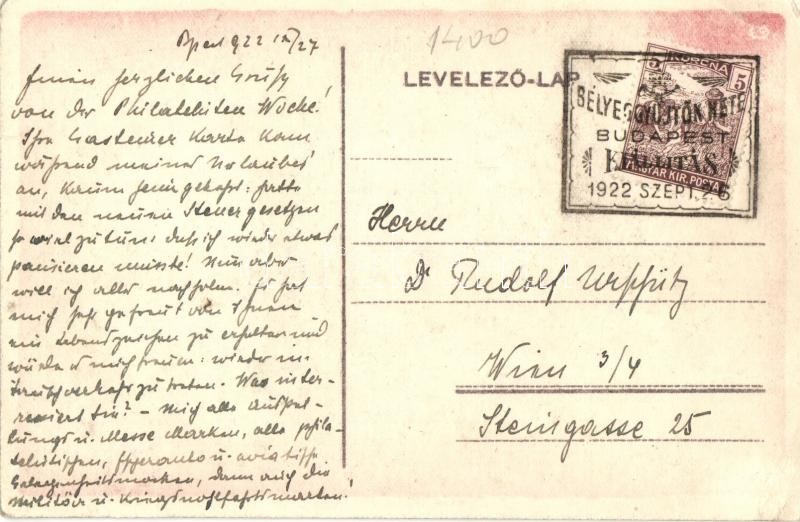 Bpest 922 IX/27
1400
Einen herzlichen Gruß
von der Philatelisten Woche!
Ihre Gasteiner Karte kam
während meines Urlaubes
an, kaum heimgekehrt hatte
mit den neuen Steuergesetzen
so viel zu tun: daß ich wieder etwas
pausieren musste! Nun aber
will ich alles nachholen. Es hat
mich sehr gefreut von Ihnen
ein Lebenszeichen zu erhalten und
würde es mich freuen: wieder in
Tauschverkehr zu treten. Was inter-
essiert Sie? – Mich alle Ausstel-
lungs u. Messe Marken, alle phila-
telistischen, Esperanto u. aviatische
Gelegenheitsmarken, dann auch die
Militär u. Kriegswohlfahrtsmarken!
LEVELEZŐ-LAP
5 KORONA 5
MAGYAR KIR. POSTA
BÉLYEGGYŰJTŐK HETE
BUDAPEST
KIÁLLITÁS
1922 SZEPT.
Herrn
Dr Rudolf
Wien 3/4
Steingasse 25